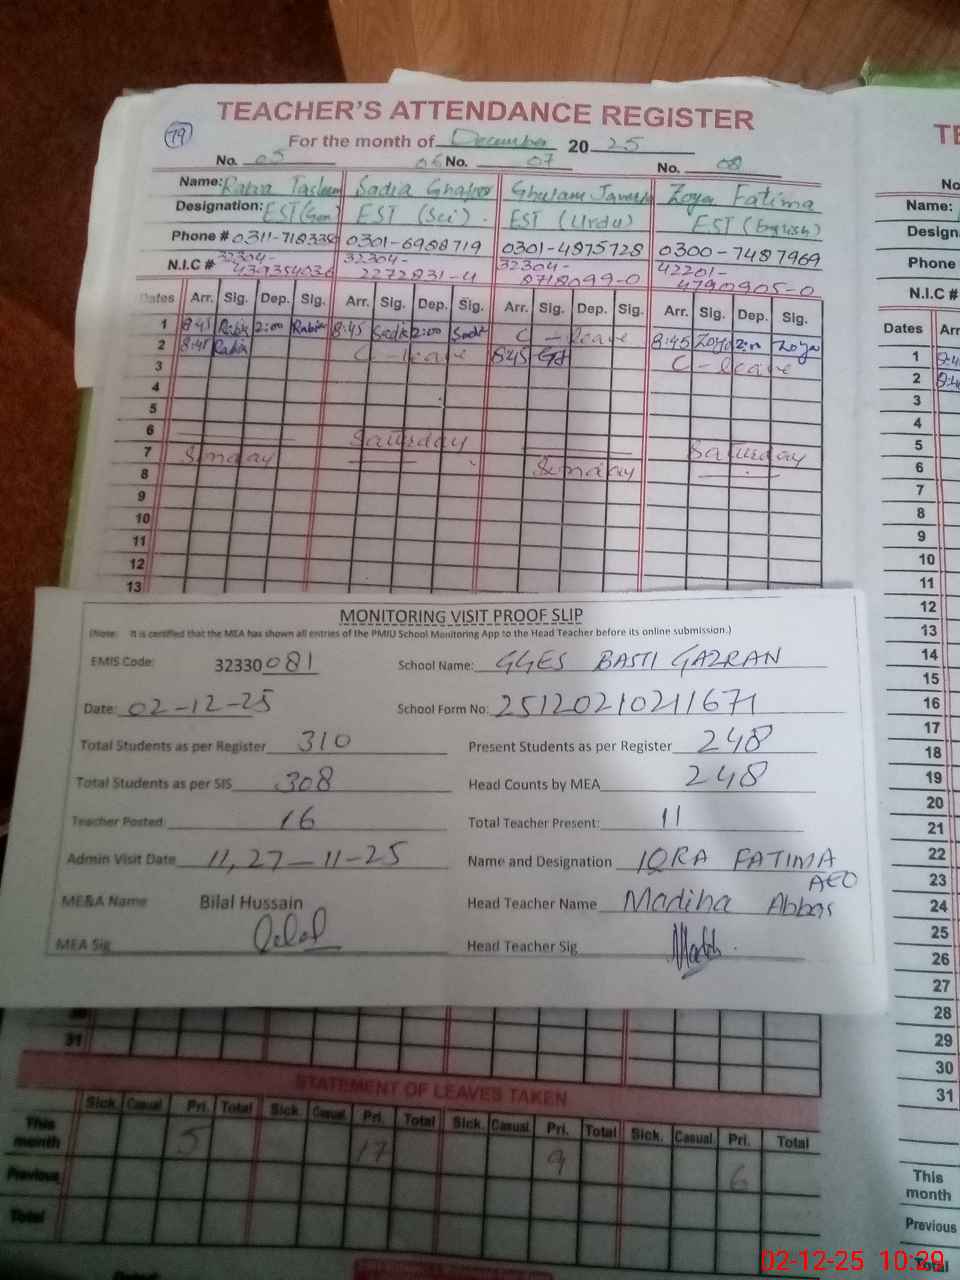 TEACHER'S ATTENDANCE REGISTER
79
For the month of December 2025
No. 05 06 No. 07 No. 08
Name: Rabia Sadia Ghafoor Ghulam Zoya Fatima
Designation: EST(Gen) EST (Sci). EST (Urdu) EST (English)
Phone # 0311-718338 0301-6988719 0301-4875728 0300-7487969
N.I.C # 32304- 32304- 32304- 42201-
439354036 2272831-4 8718099-0 4790905-0
Dates Arr. Sig. Dep. Sig. Arr. Sig. Dep. Sig. Arr. Sig. Dep. Sig. Arr. Sig. Dep. Sig.
1 8:45 Rabia 2:00 Rabia 8:45 Sadia 2:00 Sadia C-leave 8:45 Zoya 2:00 Zoya
2 8:45 Rabia C-leave 8:45 C-leave
3
4
5
6 Saturday Saturday
7 Sunday Sunday
8
9
10
11
12
13
MONITORING VISIT PROOF SLIP
(Note: It is certified that the MEA has shown all entries of the PMIU School Monitoring App to the Head Teacher before its online submission.)
EMIS Code: 32330081 School Name: GGES BASTI GAZRAN
Date: 02-12-25 School Form No: 25120210211671
Total Students as per Register 310 Present Students as per Register 248
Total Students as per SIS 308 Head Counts by MEA 248
Teacher Posted 16 Total Teacher Present: 11
Admin Visit Date 11,27-11-25 Name and Designation IQRA FATIMA
AEO
ME&A Name Bilal Hussain Head Teacher Name Madiha Abbas
MEA Sig Head Teacher Sig
31
STATEMENT OF LEAVES TAKEN
Sick. Casual Pri. Total Sick. Casual Pri. Total Sick. Casual. Pri. Total Sick. Casual. Pri. Total
This month 5 17 9 6
Previous
Total
TE
No
Name:
Design
Phone
N.I.C #
Dates Arr
1
2
3
4
5
6
7
8
9
10
11
12
13
14
15
16
17
18
19
20
21
22
23
24
25
26
27
28
29
30
31
This
month
Previous
Total
02-12-25 10:29